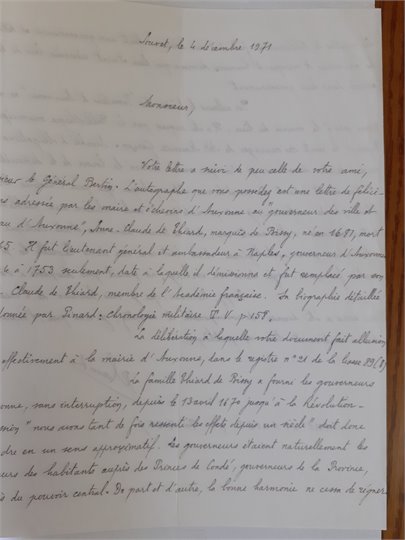 Jouvet, le 4 décembre 1971
Monsieur,
Votre lettre a suivi de peu celle de votre ami,
sieur le Général Bertin. L'autographe que vous possédez est une lettre de félici-
s adressée par les maire et échevins d'Auxonne au "gouverneur des ville et
au d'Auxonne", Anne-Claude de Thiard, marquis de Bissy, né en 1681, mort
65. Il fut lieutenant général et ambassadeur à Naples, gouverneur d'Auxonne
4 à 1753 seulement, date à laquelle il démissionna et fut remplacé par son
Claude de Thiard, membre de l'Académie française. Sa biographie détaillée
donnée par Pinard : Chronologie militaire T. V. p 158.
La délibération à laquelle votre document fait allusion
effectivement à la mairie d'Auxonne, dans le registre n° 21 de la liasse
La famille Thiard de Bissy a fourni les gouverneurs
onne, sans interruption, depuis le 13 avril 1670 jusqu'à la Révolution -
"nous avons tant de fois ressenti les effets depuis un siècle" doit donc
dre en un sens approximatif. Les gouverneurs étaient naturellement les
eurs des habitants auprès des Princes de Condé, gouverneurs de la Province,
s du pouvoir central. De part et d'autre, la bonne harmonie ne cessa de régner